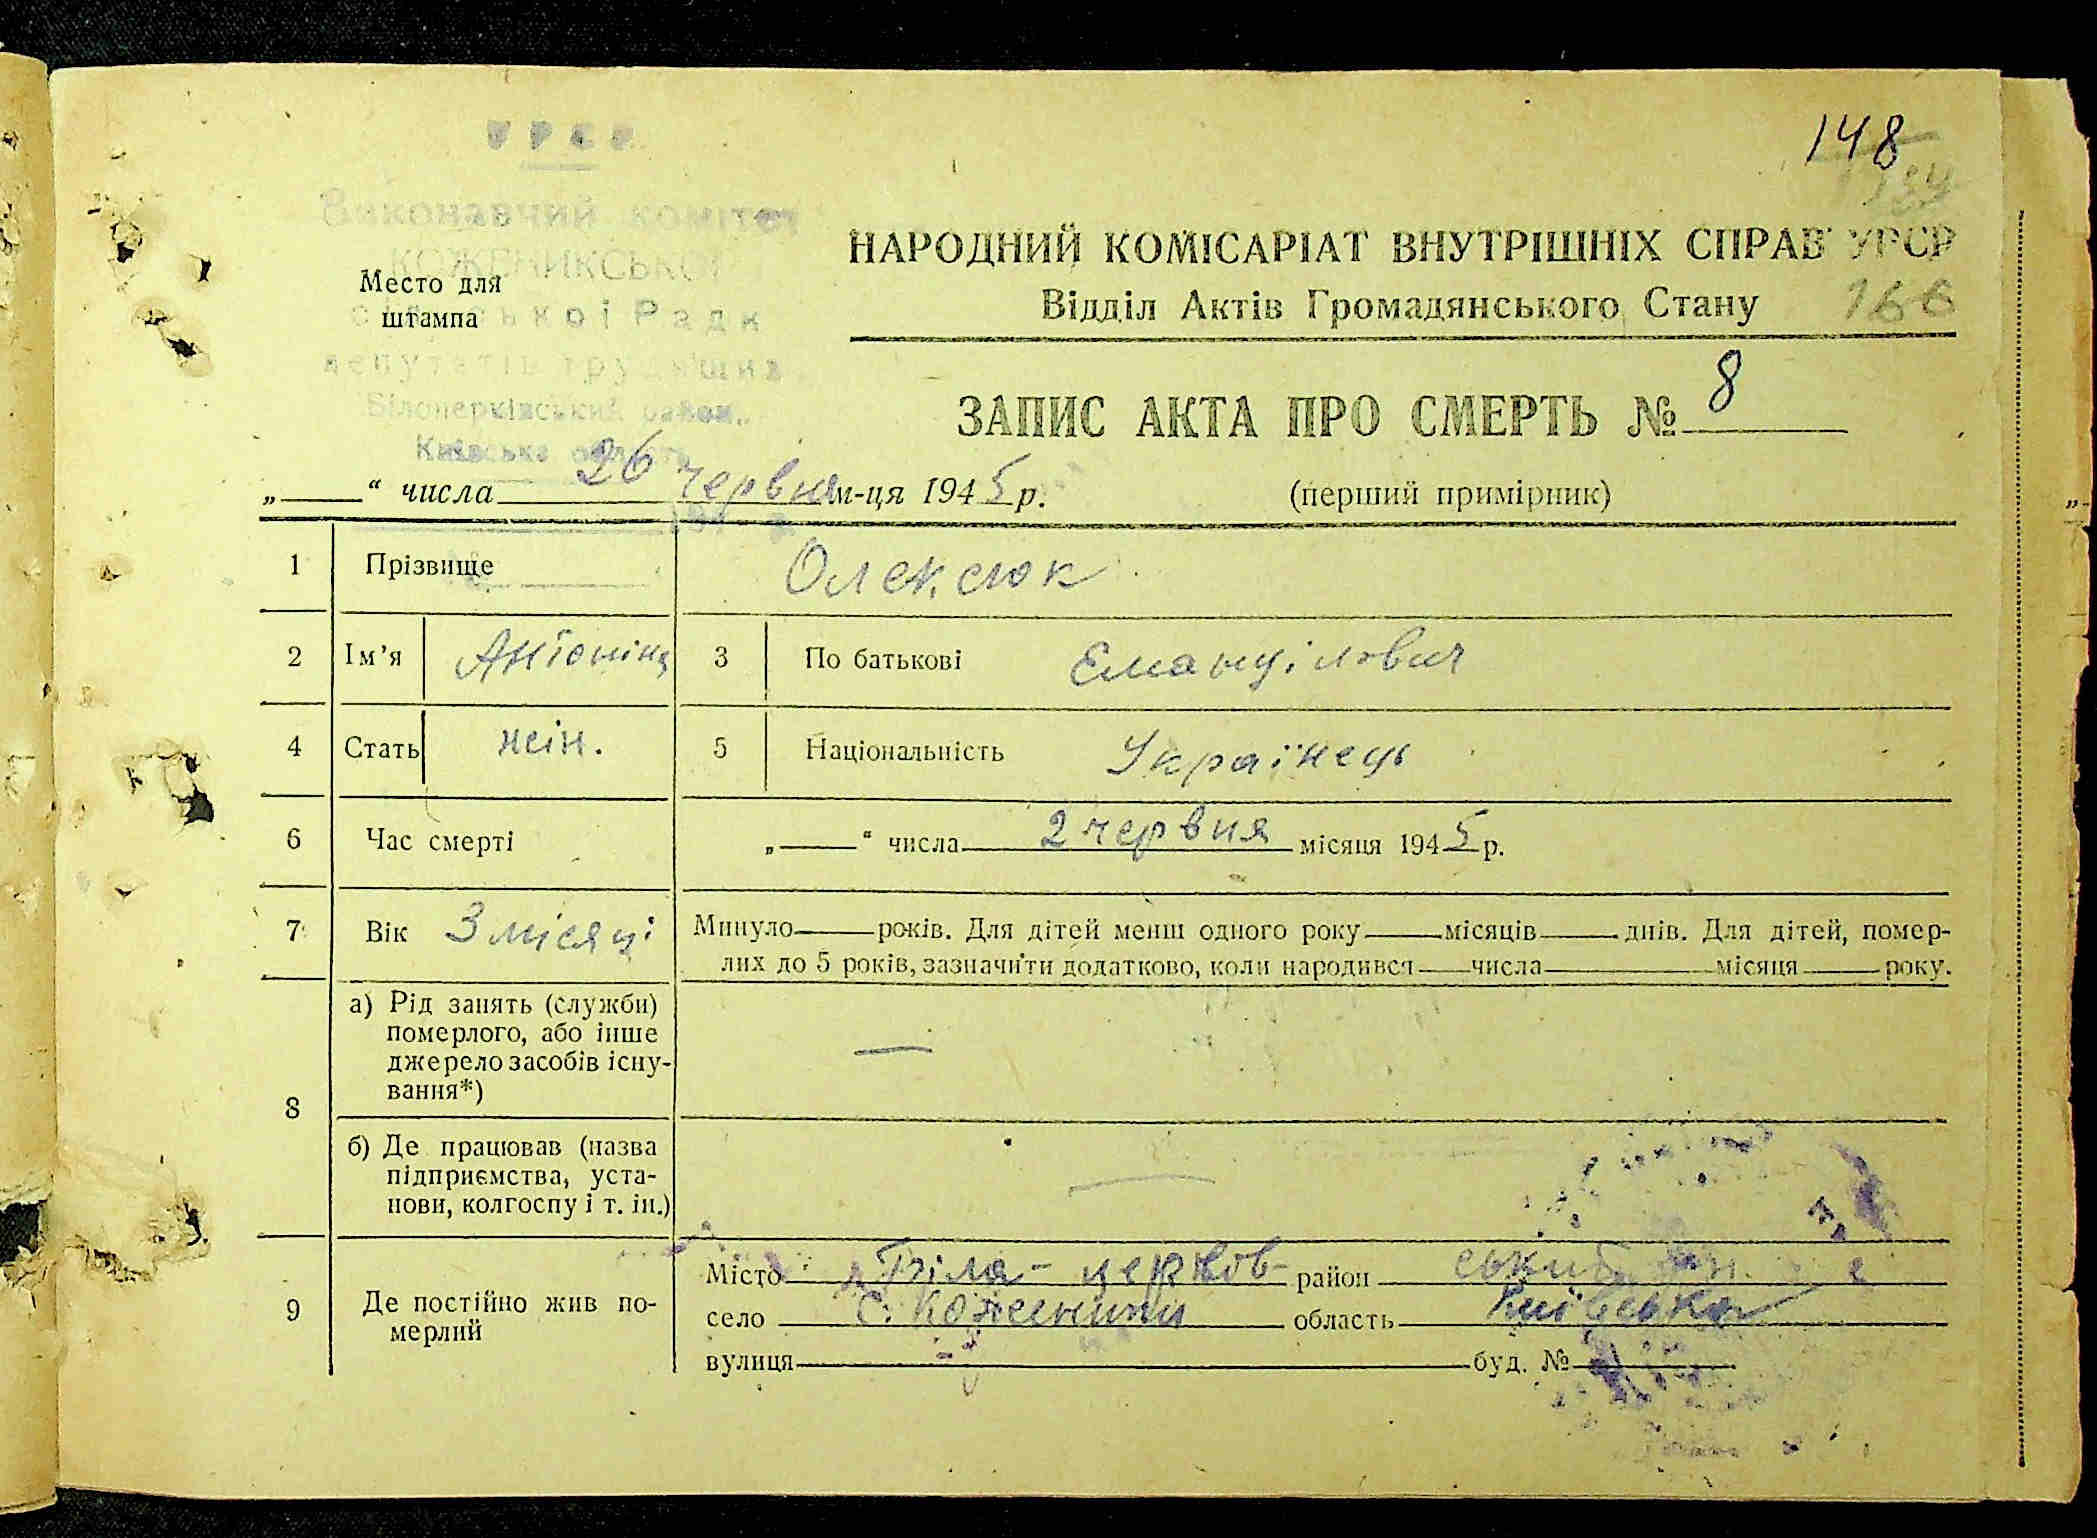 УРСР
148
134
Виконавчий комітет
КОЖЕНИКСЬКОЇ
НАРОДНИЙ КОМІСАРІАТ ВНУТРІШНІХ СПРАВ УРСР
Место для
штампа
сільської Ради
Відділ Актів Громадянського Стану
166
депутатів трудящих
Білоцерківський район,
ЗАПИС АКТА ПРО СМЕРТЬ № 8
Київська область
„ “ числа 26 червня м-ця 1945 р.
(перший примірник)
1 Прізвище Олексюк
2 Ім’я Антоніна 3 По батькові Емануілович
4 Стать жін. 5 Національність Українець
6 Час смерті „ “ числа 2 червня місяця 1945 р.
7 Вік 3 місяці Минуло років. Для дітей менш одного року місяців днів. Для дітей, помер-
лих до 5 років, зазначити додатково, коли народився числа місяця року.
8 а) Рід занять (служби)
померлого, або інше
джерело засобів існу-
вання*)
б) Де працював (назва
підприємства, уста-
нови, колгоспу і т. ін.)
9 Де постійно жив по-
мерлий
Місто Біла-церков- район ський
село с. Коженики область Київська
вулиця буд. №